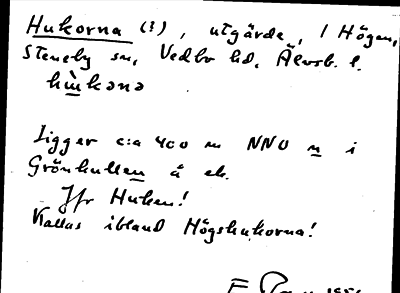 Hukorna (?), utgärde, i Högen,
Steneby sn, Vedbo hd, Älvsb. l.
Ligger c:a 400 m NNO m i
Grönhulten å ek.
Jfr Huken!
Kallas ibland Högshukorna!